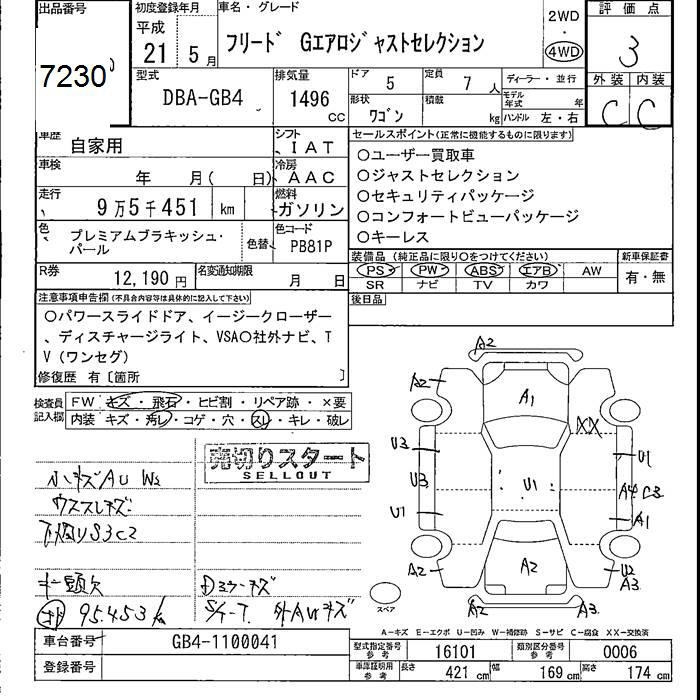 出品番号
7230
初度登録年月
平成
21 5月
車名・グレード
フリード Gエアロジャストセレクション
2WD
・
4WD
評価点
3
型式
DBA-GB4
排気量
1496
CC
ドア 5
定員 7 人
ディーラー・並行
形状 ワゴン
積載 kg
モデル年式 年
ハンドル 左・右
外装 内装
C C
車歴 自家用
シフト IAT
車検 年 月( 日)
冷房 AAC
走行 9万5千451 km
燃料 ガソリン
色 プレミアムブラキッシュ・パール
色替
色コード PB81P
R券 12,190円
名変通知期限 月 日
セールスポイント(正常に機能するものに限ります)
○ユーザー買取車
○ジャストセレクション
○セキュリティパッケージ
○コンフォートビューパッケージ
○キーレス
装備品(純正品に限り○をつけてください)
PS PW ABS エアB AW
SR ナビ TV カワ
新車保証書
有・無
後日品
注意事項申告欄(不具合内容等は具体的に記入して下さい)
○パワースライドドア、イージークローザー
、ディスチャージライト、VSA○社外ナビ、T
V(ワンセグ)
修復歴 有〔箇所
検査員記入欄
FW キズ・飛石・ヒビ割・リペア跡・×要
内装 キズ・汚レ・コゲ・穴・スレ・キレ・破レ
売切りスタート
SELLOUT
小キズAU W2
ウススレキズ
下廻りS3C2
95.453
A2
A2
A1
XX
U3
U1
U3
U1
A4 C3
U1
A1
A2
A2
U2
A3
A2
A3
スペア
A-キズ E-エクボ U-凹み W-補修跡 S-サビ C-腐食 XX-交換済
車台番号 GB4-1100041
登録番号
型式指定番号 参考 16101
類別区分番号 参考 0006
車庫証明用 参考 長さ 421 cm 幅 169 cm 高さ 174 cm